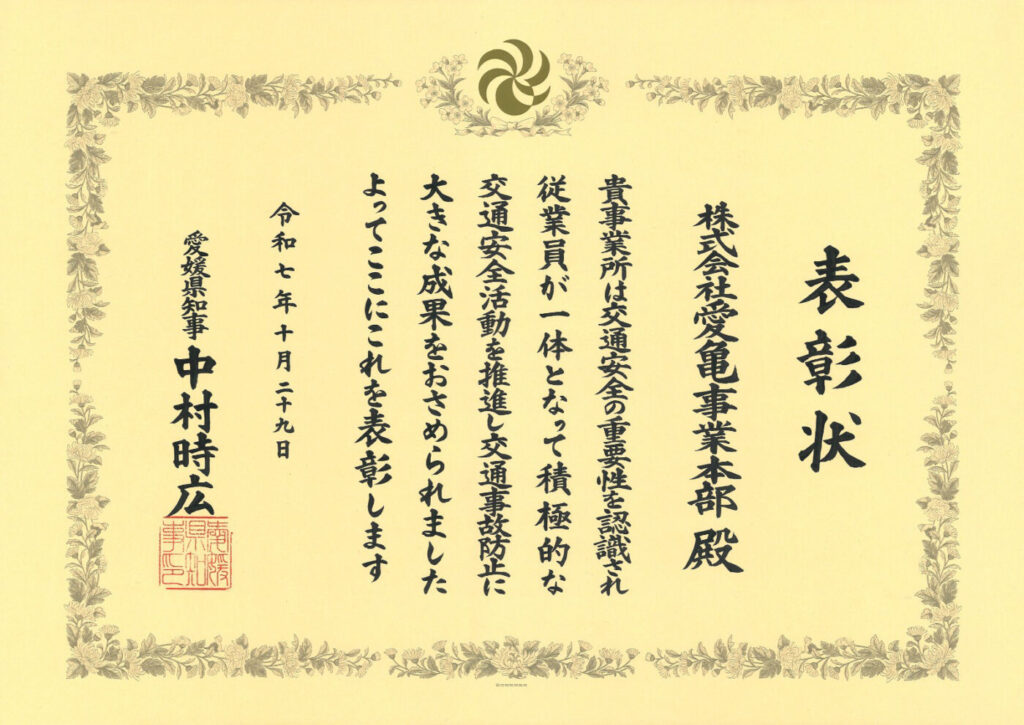 表彰状
株式会社愛亀事業本部 殿
貴事業所は交通安全の重要性を認識され
従業員が一体となって積極的な
交通安全活動を推進し交通事故防止に
大きな成果をおさめられました
よってここにこれを表彰します
令和七年十月二十九日
愛媛県知事 中村時広
愛媛
県知
事印